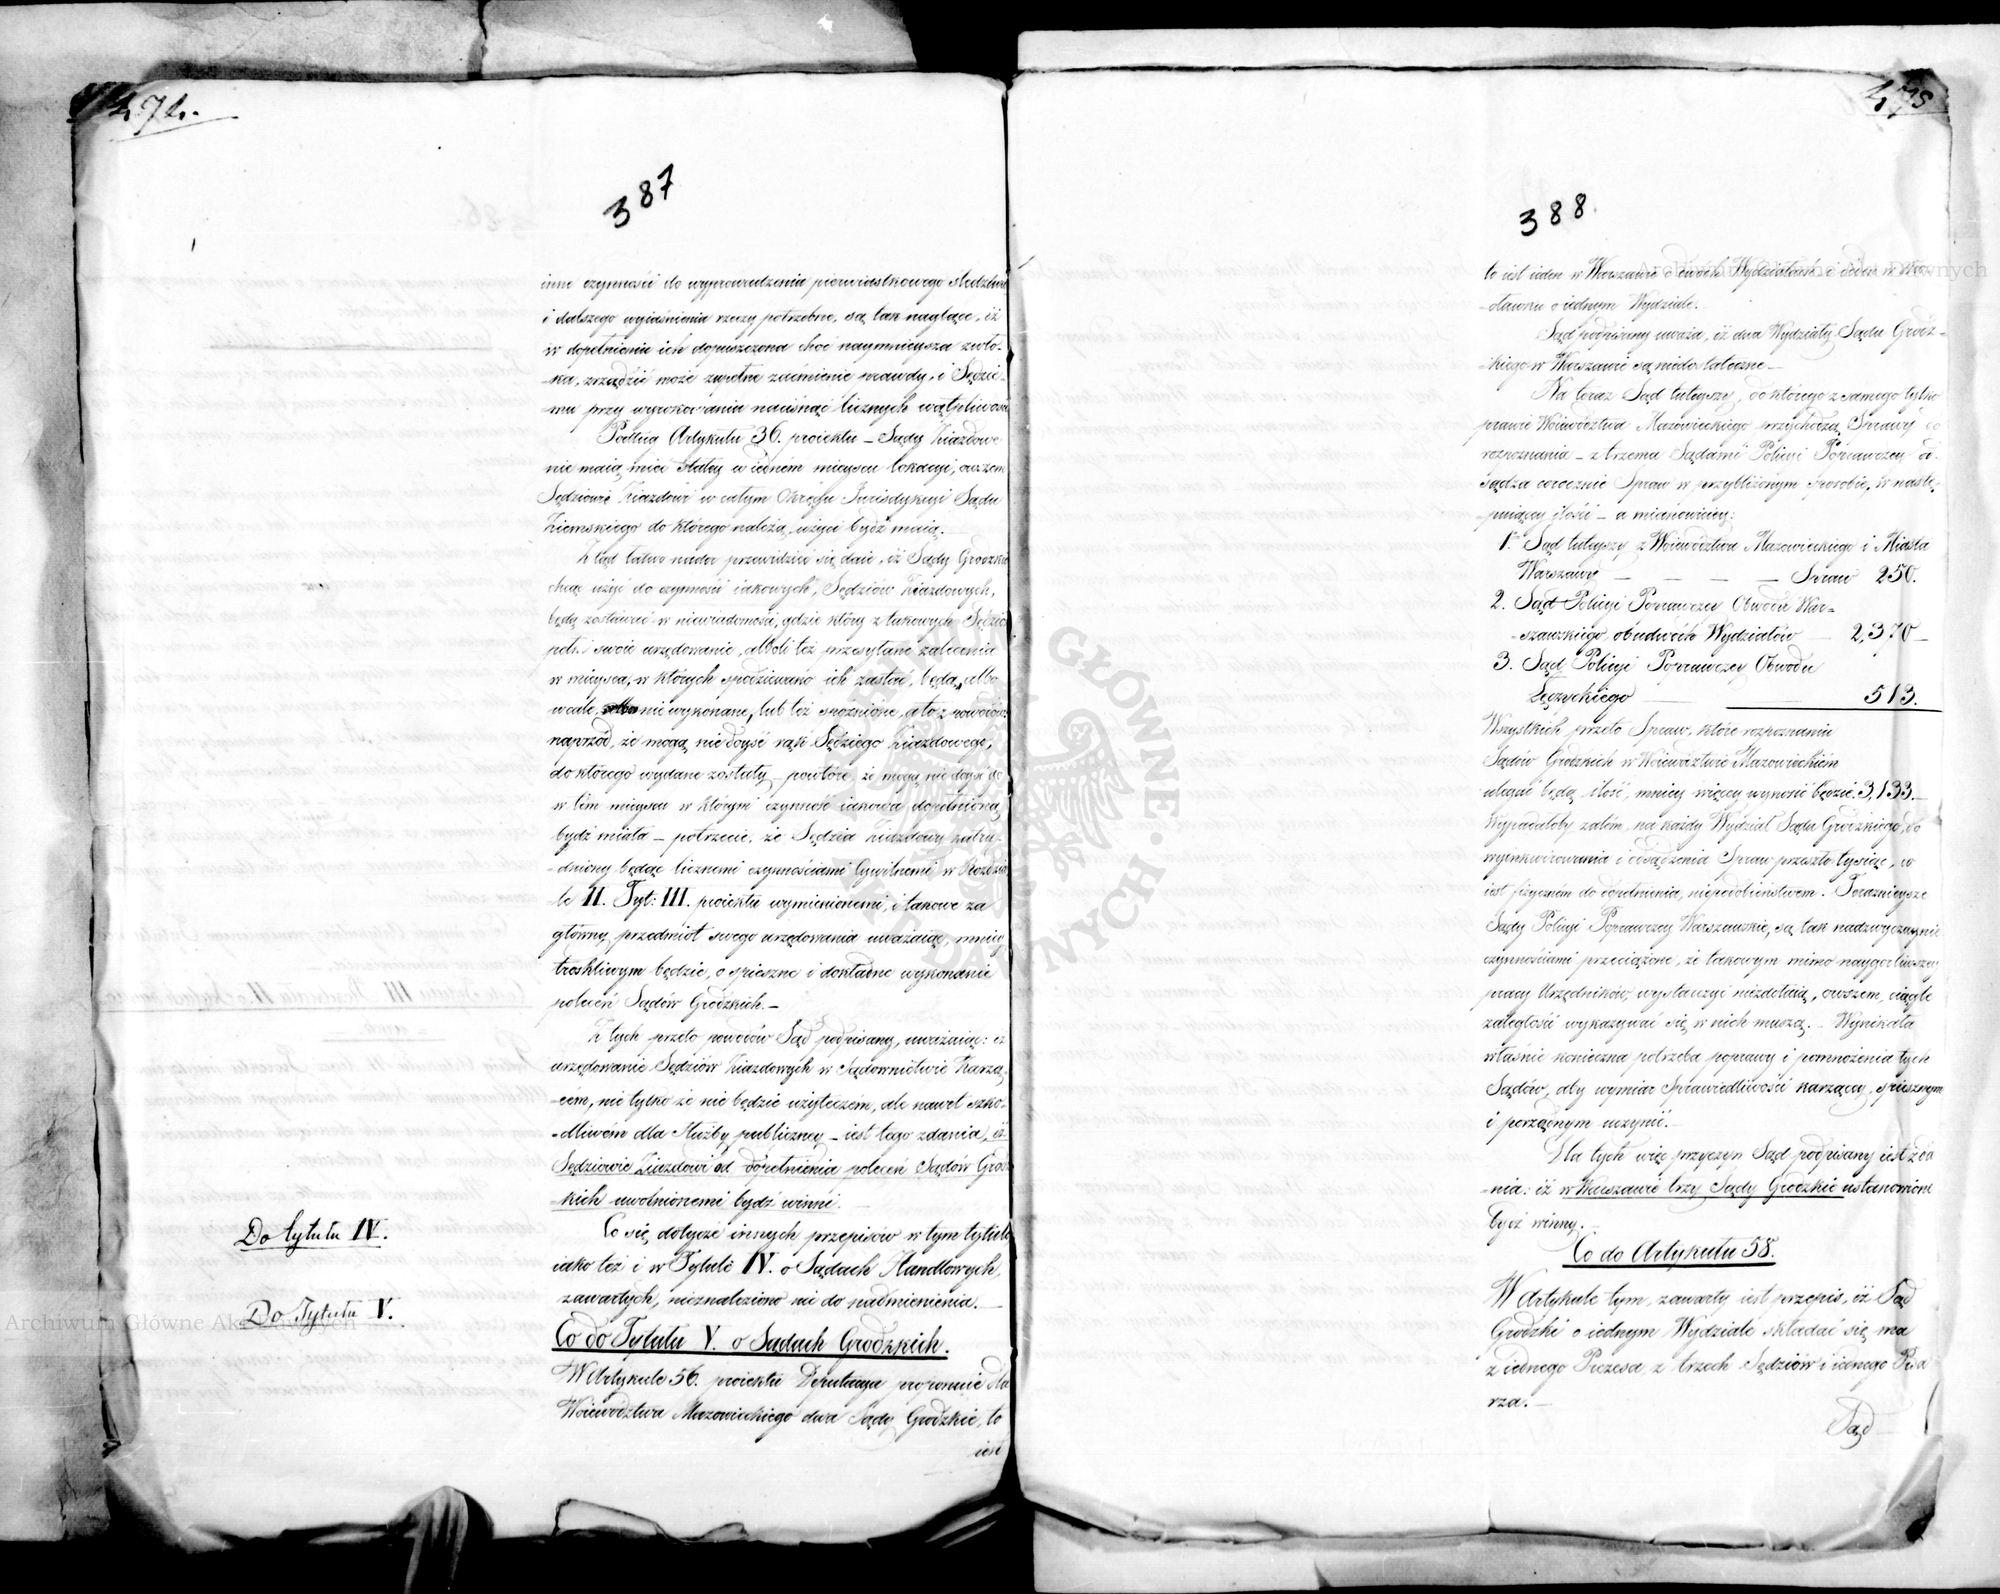 474.
387
inne czynności do wyprowadzenia pierwiastkowego śledztwa
i dalszego wyiaśnienia rzeczy potrzebne, są tak naglące, iż
w dopełnieniu ich dopuszczona choć naymnieysza zwło-
-ka, zrządzić może zupełne zaćmienie prawdy, i Sędzie-
-mu przy wyrokowaniu nacisnąć licznych wątpliwości
Podług Artykułu 36. proiektu – Sądy Ziazdowe
nie maią mieć stałey w iedném mieyscu lokacyi, owszem
Sędziowie Ziazdowi w całym Okręgu Jurisdykcyi Sądu
Ziemskiego do którego należą, użyci bydź maią.
Ztąd łatwo nader przewidzieć się daie, iż Sądy Grodzkie
chcąc użyć do czynności iakowych, Sędziów Ziazdowych,
będą zostawać w niewiadomości, gdzie który z takowych Sędziów
pełni swoie urzędowanie, alboli też przesyłane zalecenia
w mieysca, w których spodziewano ich zastać, będą, albo
wcale, nie wykonane, lub też spóźnione, a to z powodów:
naprzód, że mogą nie doyść rąk Sędziego Ziazdowego,
do którego wydane zostały – powtóre, że mogą nie doyść go
w tém mieyscu w którym czynność iakowa dopełnioną
bydź miała – potrzecie, że Sędzia Ziazdowy zatru-
-dniony będąc licznemi czynnościami Cywilnemi w Rozdzia-
-le II. Tyt: III. proiektu wymienionemi, i takowe za
główny przedmiot swego urzędowania uważaiąc, mniey
troskliwym będzie, o spieszne i dokładne wykonanie
poleceń Sądów Grodzkich. –
Z tych przeto powodów Sąd podpisany, uważaiąc: iż
urzędowanie Sędziów Ziazdowych w Sądownictwie Karzą-
-cém, nie tylko że nie będzie użyteczém, ale nawet szko-
-dliwém dla służby publiczney – iest tego zdania, iż
Sędziowie Ziazdowi od dopełnienia poleceń Sądów Grodz-
-kich uwolnionemi bydź winni. –
Do tytułu IV.
Co się dotycze innych przepisów w tym tytule
iako też i w Tytule IV. o Sądach Handlowych,
zawartych, nieznaleziono nic do nadmienienia. –
Do Tytułu V.
Co do Tytułu V. o Sądach Grodzkich.
W Artykule 56. proiektu Deputacya proponuie dla
Woiewództwa Mazowieckiego dwa Sądy Grodzkie, to
iest
475
388.
to iest ieden w Warszawie o dwóch Wydziałach i ieden w Wło-
-cławku o iednym Wydziale.
Sąd podpisany uważa, iż dwa Wydziały Sądu Grodz-
-kiego w Warszawie są niedostateczne –
Na teraz Sąd tuteyszy, do którego z samego tylko
prawie Woiewództwa Mazowieckiego przychodzą Sprawy do
rozpoznania – z trzema Sądami Policyi Poprawczey od-
-sądza corocznie Spraw w przybliżonym sposobie, w nastę-
-puiącey ilości – a mianowicie:
1. Sąd tuteyszy z Woiewództwa Mazowieckiego i Miasta
Warszawy – – – – Spraw 250.
2. Sąd Policyi Poprawczey Obwodu War-
-szawskiego obudwóch Wydziałów – 2,370 –
3. Sąd Policyi Poprawczey Obwodu
Łęczyckiego – 513.
Wszystkich przeto Spraw, które rozpoznaniu
Sądów Grodzkich w Woiewództwie Mazowieckiém
ulegać będą ilość, mniey więcey wynosić będzie. 3,133. –
Wypadałoby zatém, na każdy Wydział Sądu Grodzkiego, do
wyinkwirowania i odsądzenia Spraw przeszło tysiąc, co
iest fizyczném do dopełnienia niepodobieństwem. Teraznieysze
Sądy Policyi Poprawczey Warszawskie, są tak nadzwyczaynie
czynnościami przeciążone, że takowym mimo naygorliwszey
pracy Urzędników, wystarczyć niezdołaią, owszem, ciągłe
zaległości wykazywać się w nich muszą. – Wynikała
właśnie konieczna potrzeba poprawy i pomnożenia tych
Sądów, aby wymiar Sprawiedliwości karzącey, spiesznym
i porządnym uczynić. –
Dla tych więc przyczyn Sąd podpisany iest zda-
-nia: iż w Warszawie trzy Sądy Grodzkie ustanowione
bydź winny. –
Co do Artykułu 58.
W Artykule tym, zawarty iest przepis, iż Sąd
Grodzki o iednym Wydziale składać się ma
z iednego Prezesa, z trzech Sędziów i iednego Pisa
rza. –
Sąd
Archiwum Główne Akt Dawnych
Archiwum Główne Akt Dawnych
GŁÓWNE
DAWNYCH